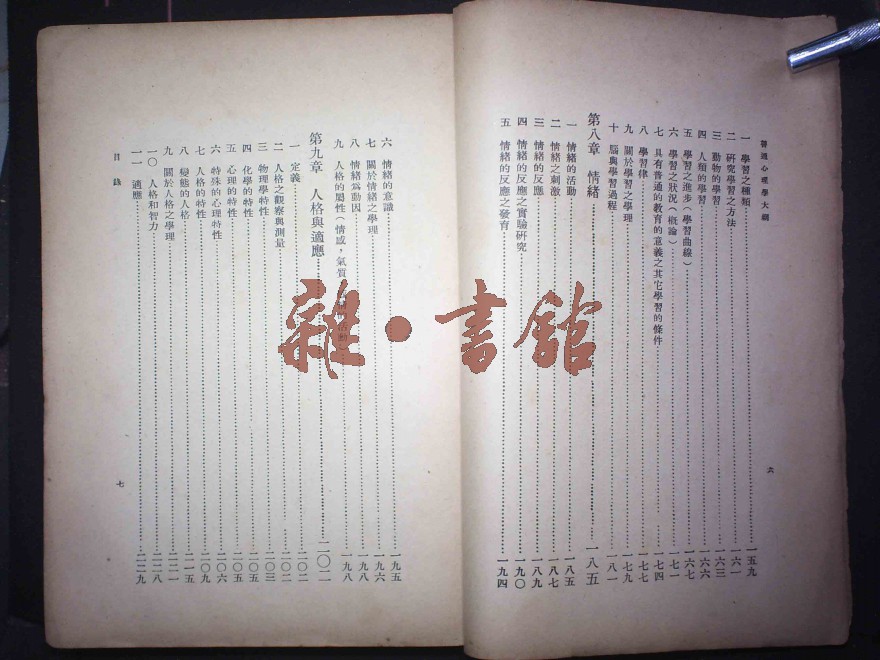 普通心理學大綱
一 學習之種類……一五九
二 研究學習之方法……一六一
三 動物的學習……一六三
四 人類的學習……一六六
五 學習之進步(學習曲線)……一六七
六 學習之狀況(概論)……一七一
七 具有普通的教育的意義之其它學習的條件……一七四
八 學習律……一七七
九 關於學習之學理……一七九
十 腦與學習過程……一八一
第八章 情緒……一八五
一 情緒的活動……一八五
二 情緒之刺激……一八七
三 情緒的反應……一八九
四 情緒的反應之實驗研究……一九〇
五 情緒的反應之發育……一九四
六
六 情緒的意識……一九五
七 關於情緒之學理……一九六
八 情緒為動因……一九八
九 人格的屬性(情感,氣質……一九八
第九章 人格與適應……二〇二
一 定義……二〇二
二 人格之觀察與測量……二〇二
三 物理學特性……二〇三
四 化學的特性……二〇五
五 心理的特性……二〇五
六 特殊的心理特性……二〇六
七 人格的特性……二〇九
八 變態的人格……二一五
九 關於人格之學理……二二一
一〇 人格和智力……二二八
一一 適應……二二九
目錄
七
雜·書館